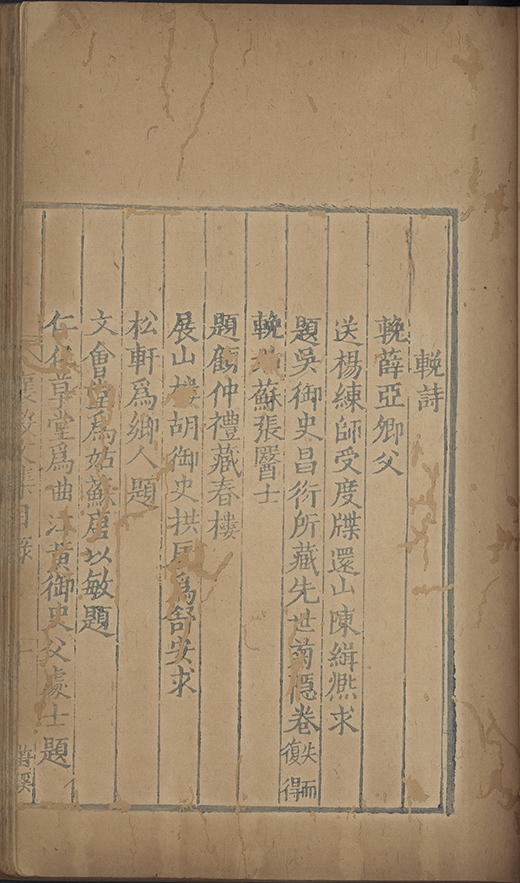 輓詩
輓薛亞卿父
送楊練師受度牒還山陳緝熙求
題吳御史昌衍所藏先世菊隱卷失而復得
輓姑蘇張醫士
題顧仲禮藏春樓
展山樓胡御史拱辰為舒安求
松軒爲鄉人題
文會堂爲姑蘇唐以敏題
仁草堂爲曲江黃御史父處士題
集目錄